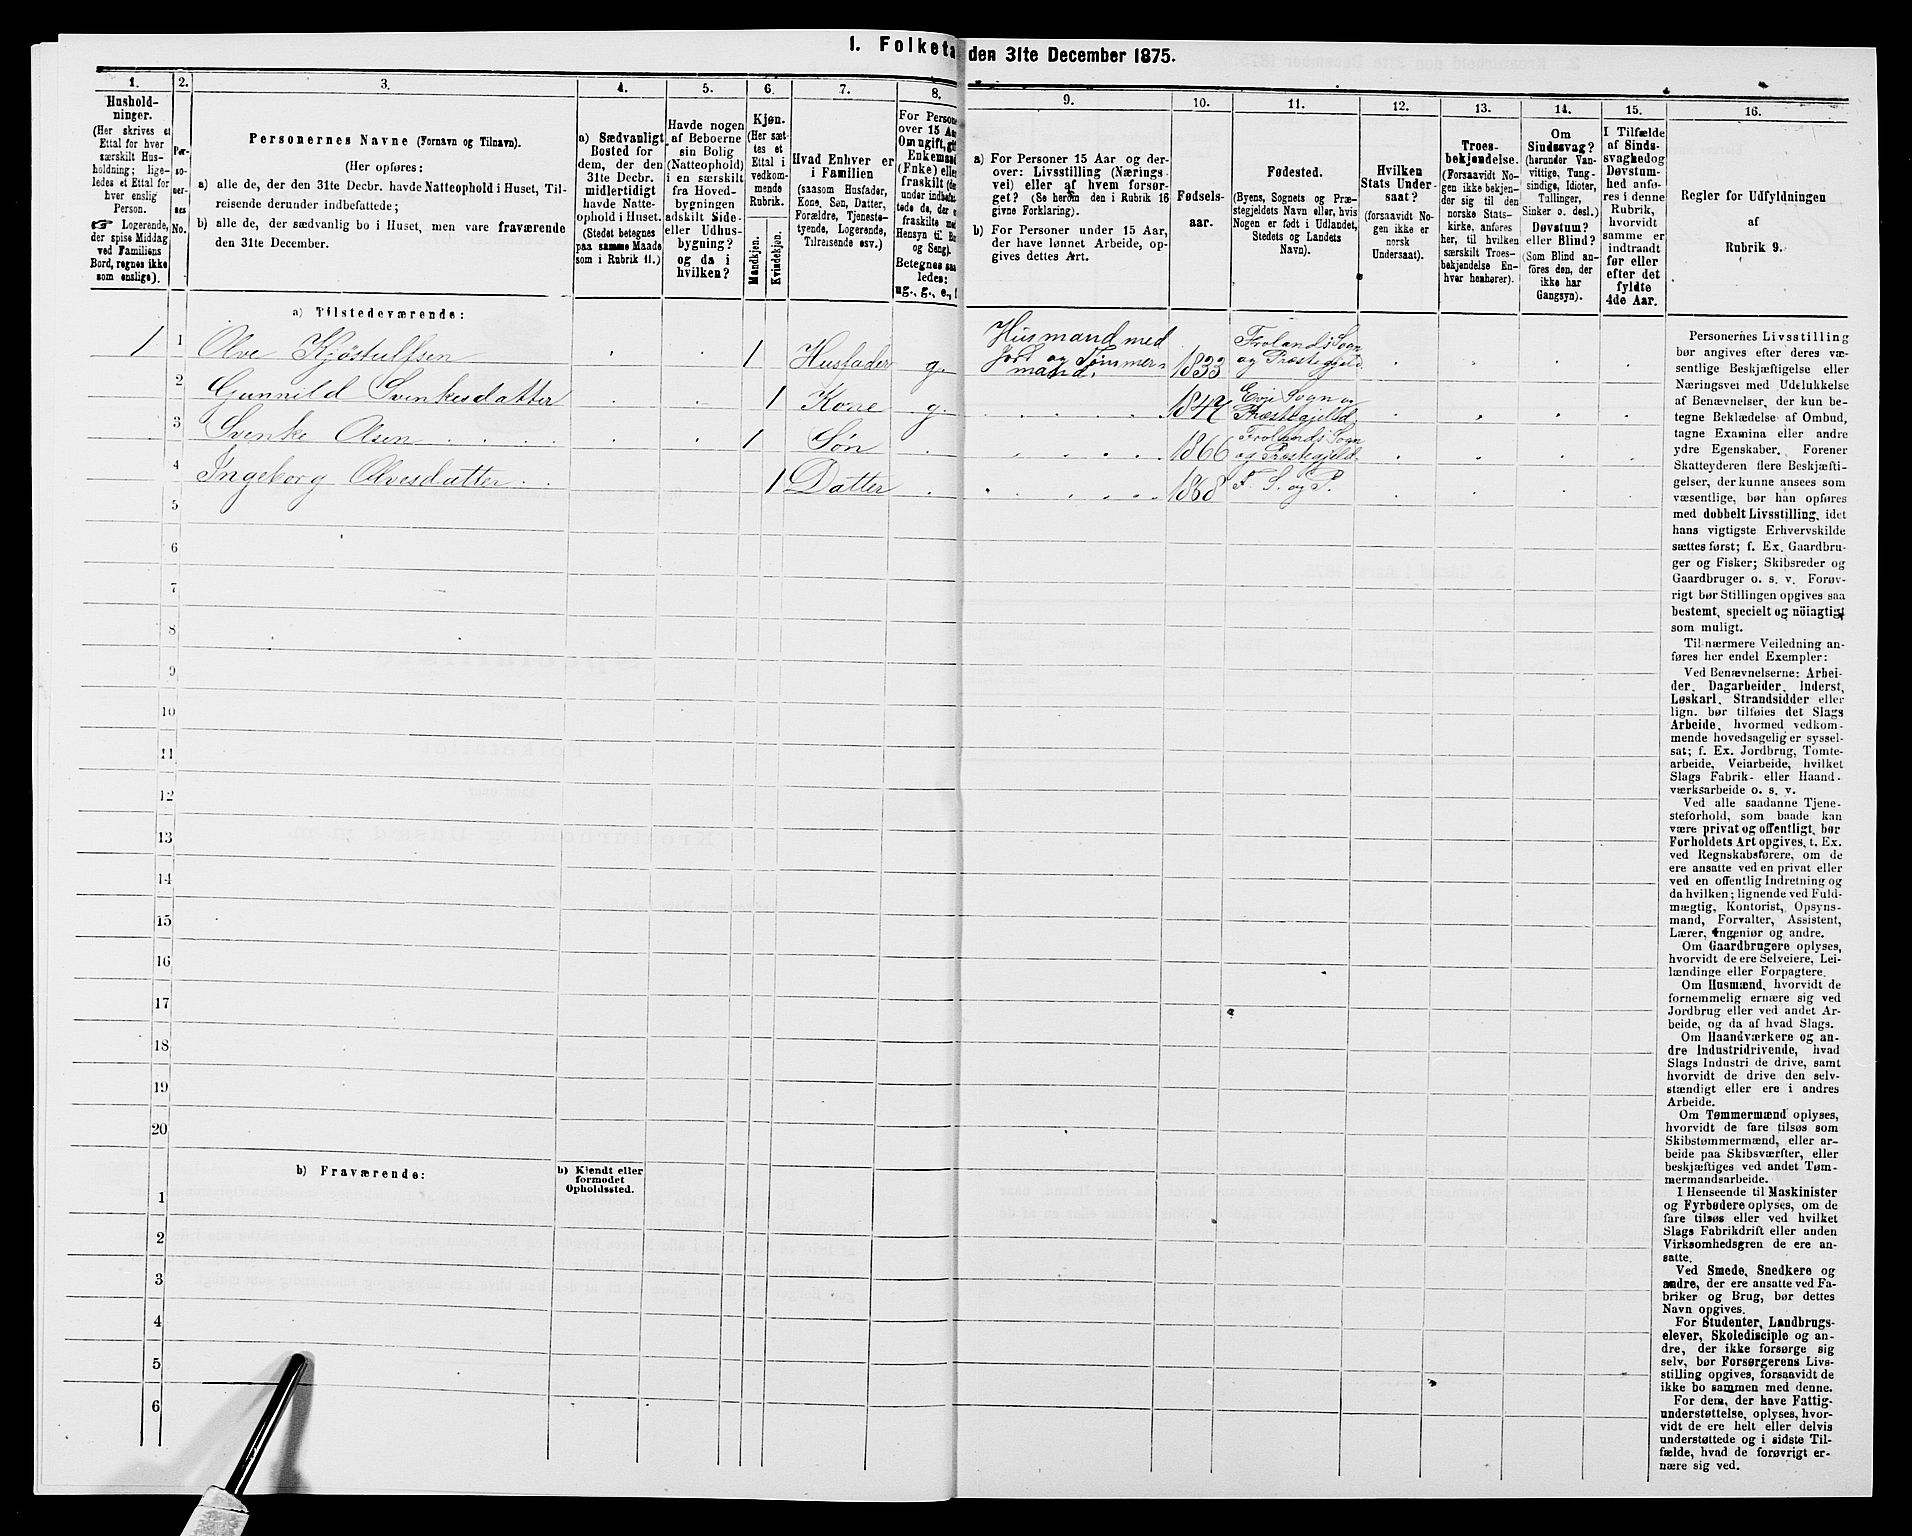 1. Folketa den 31te December 1875.
1.
Hushold-
ninger.
(Her skrives et
Ettal for hver
særskilt Hus-
holdning; lige-
ledes et Ettal for
hver enslig
Person.
Logerende,
der spise Middag
ved Familiens
Bord, regnes ikke
som enslige).
2.
Per-
so-
ner-
nes
No.
3.
Personernes Navne (Fornavn og Tilnavn).
(Her opføres:
a) alle de, der den 31te Decbr. havde Natteophold i Huset, Til-
reisende derunder indbefattede;
b) alle de, der sædvanlig bo i Huset, men vare fraværende
den 31te December.
4.
a) Sædvanligt
Bosted for
dem, der den
31te Decbr.
midlertidigt
havde Natte-
ophold i Huset.
(Stedet betegnes
paa samme Maade
som i Rubrik 11.)
5.
Havde nogen
af Beboerne
sin Bolig
(Natteophold)
i en særskilt
fra Hoved-
bygningen
adskilt Side-
eller Udhus-
bygning?
og da i
hvilken?
6.
Kjøn.
(Her sæt-
tes et
Ettal i
vedkom-
mende
Rubrik.
Mandkjøn.
Kvindekjøn.
7.
Hvad Enhver er
i Familien
(saasom Husfader,
Kone, Søn, Datter,
Forældre, Tjeneste-
tyende, Logerende,
Tilreisende osv.)
8.
For Persone
over 15 Aa
Om ugift, gif
Enkemand
(Enke) elle
fraskilt (de
under indbe
tede de, der e
fraskilte me
Hensyn til Bo
og Seng).
Betegnes saa
ledes:
ug., g., e., f
9.
a) For Personer 15 Aar og der-
over: Livsstilling (Nærings-
vei) eller af hvem forsør-
get? (Se herom den i Rubrik 16
givne Forklaring).
b) For Personer under 15 Aar,
der have lønnet Arbeide, op-
gives dettes Art.
10.
Fødsels-
aar.
11.
Fødested.
(Byens, Sognets og Præ-
stegjeldets Navn eller, hvis
Nogen er født i Udlandet,
Stedets og Landets
Navn).
12.
Hvilken
Stats Under-
saat?
(forsaavidt No-
gen ikke er
norsk
Undersaat).
13.
Troes-
bekjendelse.
(Forsaavidt No-
gen ikke bekjen-
der sig til den
norske Stats-
kirke, anføres
her, til hvilken
særskilt Troes-
bekjendelse En-
hver henhører).
14.
Om
Sindssvag?
(herunder Van-
vittige, Tung-
sindige, Idioter,
Tullinger,
Sinker o. desl.)
Døvstum?
eller Blind?
(Som Blind an-
føres den, der
ikke har
Gangsyn).
15.
I Tilfælde
af Sinds-
svaghed og
Døvstum-
hed anfø-
res i denne
Rubrik,
hvorvidt
samme er
indtraadt
før eller
efter det
fyldte
4de Aar.
16.
Regler for Udfyldningen
af
Rubrik 9.
a) Tilstedeværende:
1 1 Olve Kjöstulfsen 1 Husfader g. Husmand med
Jord og Tømmer-
mand. 1833 Frolands Sogn
og Præstegjeld.
2 Gunnild Svenkesdatter 1 Kone g. Evje Sogn og
Præstegjeld
3 Svenke Olsen 1 Søn 1866 Frolands Sogn
og Præstegjeld.
4 Ingeborg Olvesdatter 1 Datter 1868 F. S. og P.
5
6
7
8
9
10
11
12
13
14
15
16
17
18
19
20
b) Fraværende:
b) Kjendt eller
formodet
Opholdssted.
1
2
3
4
5
6
Personernes Livsstilling
bør angives efter deres væ-
sentlige Beskjæftigelse eller
Næringsvei med Udelukkelse
af Benævnelser, der kun be-
tegne Beklædelse af Ombud,
tagne Examina eller andre
ydre Egenskaber. Forener
Skatteyderen flere Beskjæfti-
gelser, der kunne ansees som
væsentlige, bør han opføres
med dobbelt Livsstilling, idet
hans vigtigste Erhvervskilde
sættes først; f. Ex. Gaardbru-
ger og Fisker; Skibsreder og
Gaardbruger o. s. v. Forøv-
rigt bør Stillingen opgives saa
bestemt, specielt og nöiagtigt
som muligt.
Til nærmere Veiledning an-
føres her endel Exempler:
Ved Benævnelserne: Arbei-
der, Dagarbeider, Inderst,
Løskarl, Strandsidder eller
lign. bør tilføies det Slags
Arbeide, hvormed vedkom-
mende hovedsagelig er syssel-
sat; f. Ex. Jordbrug, Tomte-
arbeide, Veiarbeide, hvilket
Slags Fabrik- eller Haand-
værksarbeide o. s. v.
Ved alle saadanne Tjene-
steforhold, som baade kan
være privat og offentligt, bør
Forholdets Art opgives, t. Ex.
ved Regnskabsførere, om de
ere ansatte ved en privat eller
ved en offentlig Indretning og
da hvilken; lignende ved Fuld-
mægtig, Kontorist, Opsyns-
mand, Forvalter, Assistent,
Lærer, Ingeniør og andre.
Om Gaardbrugere oplyses,
hvorvidt de ere Selveiere, Lei-
lændinge eller Forpagtere.
Om Husmænd, hvorvidt de
fornemmelig ernære sig ved
Jordbrug eller ved andet Ar-
beide, og da af hvad Slags.
Om Haandværkere og an-
dre Industridrivende, hvad
Slags Industri de drive, samt
hvorvidt de drive den selv-
stændigt eller ere i andres
Arbeide.
Om Tømmermænd oplyses,
hvorvidt de fare tilsøs som
Skibstømmermænd, eller ar-
beide paa Skibsværfter, eller
beskjæftiges ved andet Tøm-
mermandsarbeide.
I Henseende til Maskinister
og Fyrbødere oplyses, om de
fare tilsøs eller ved hvilket
Slags Fabrikdrift eller anden
Virksomhedsgren de ere an-
satte.
Ved Smede, Snedkere og
andre, der ere ansatte ved Fa-
briker og Brug, bør dettes
Navn opgives.
For Studenter, Landbrugs-
elever, Skoledisciple og an-
dre, der ikke forsørge sig
selv, bør Forsørgerens Livs-
stilling opgives, forsaavidt de
ikke bo sammen med denne.
For dem, der have Fattig-
understøttelse, oplyses, hvor-
vidt de ere helt eller delvis
understøttede og i sidste Til-
fælde, hvad de forøvrigt er-
nære sig ved.